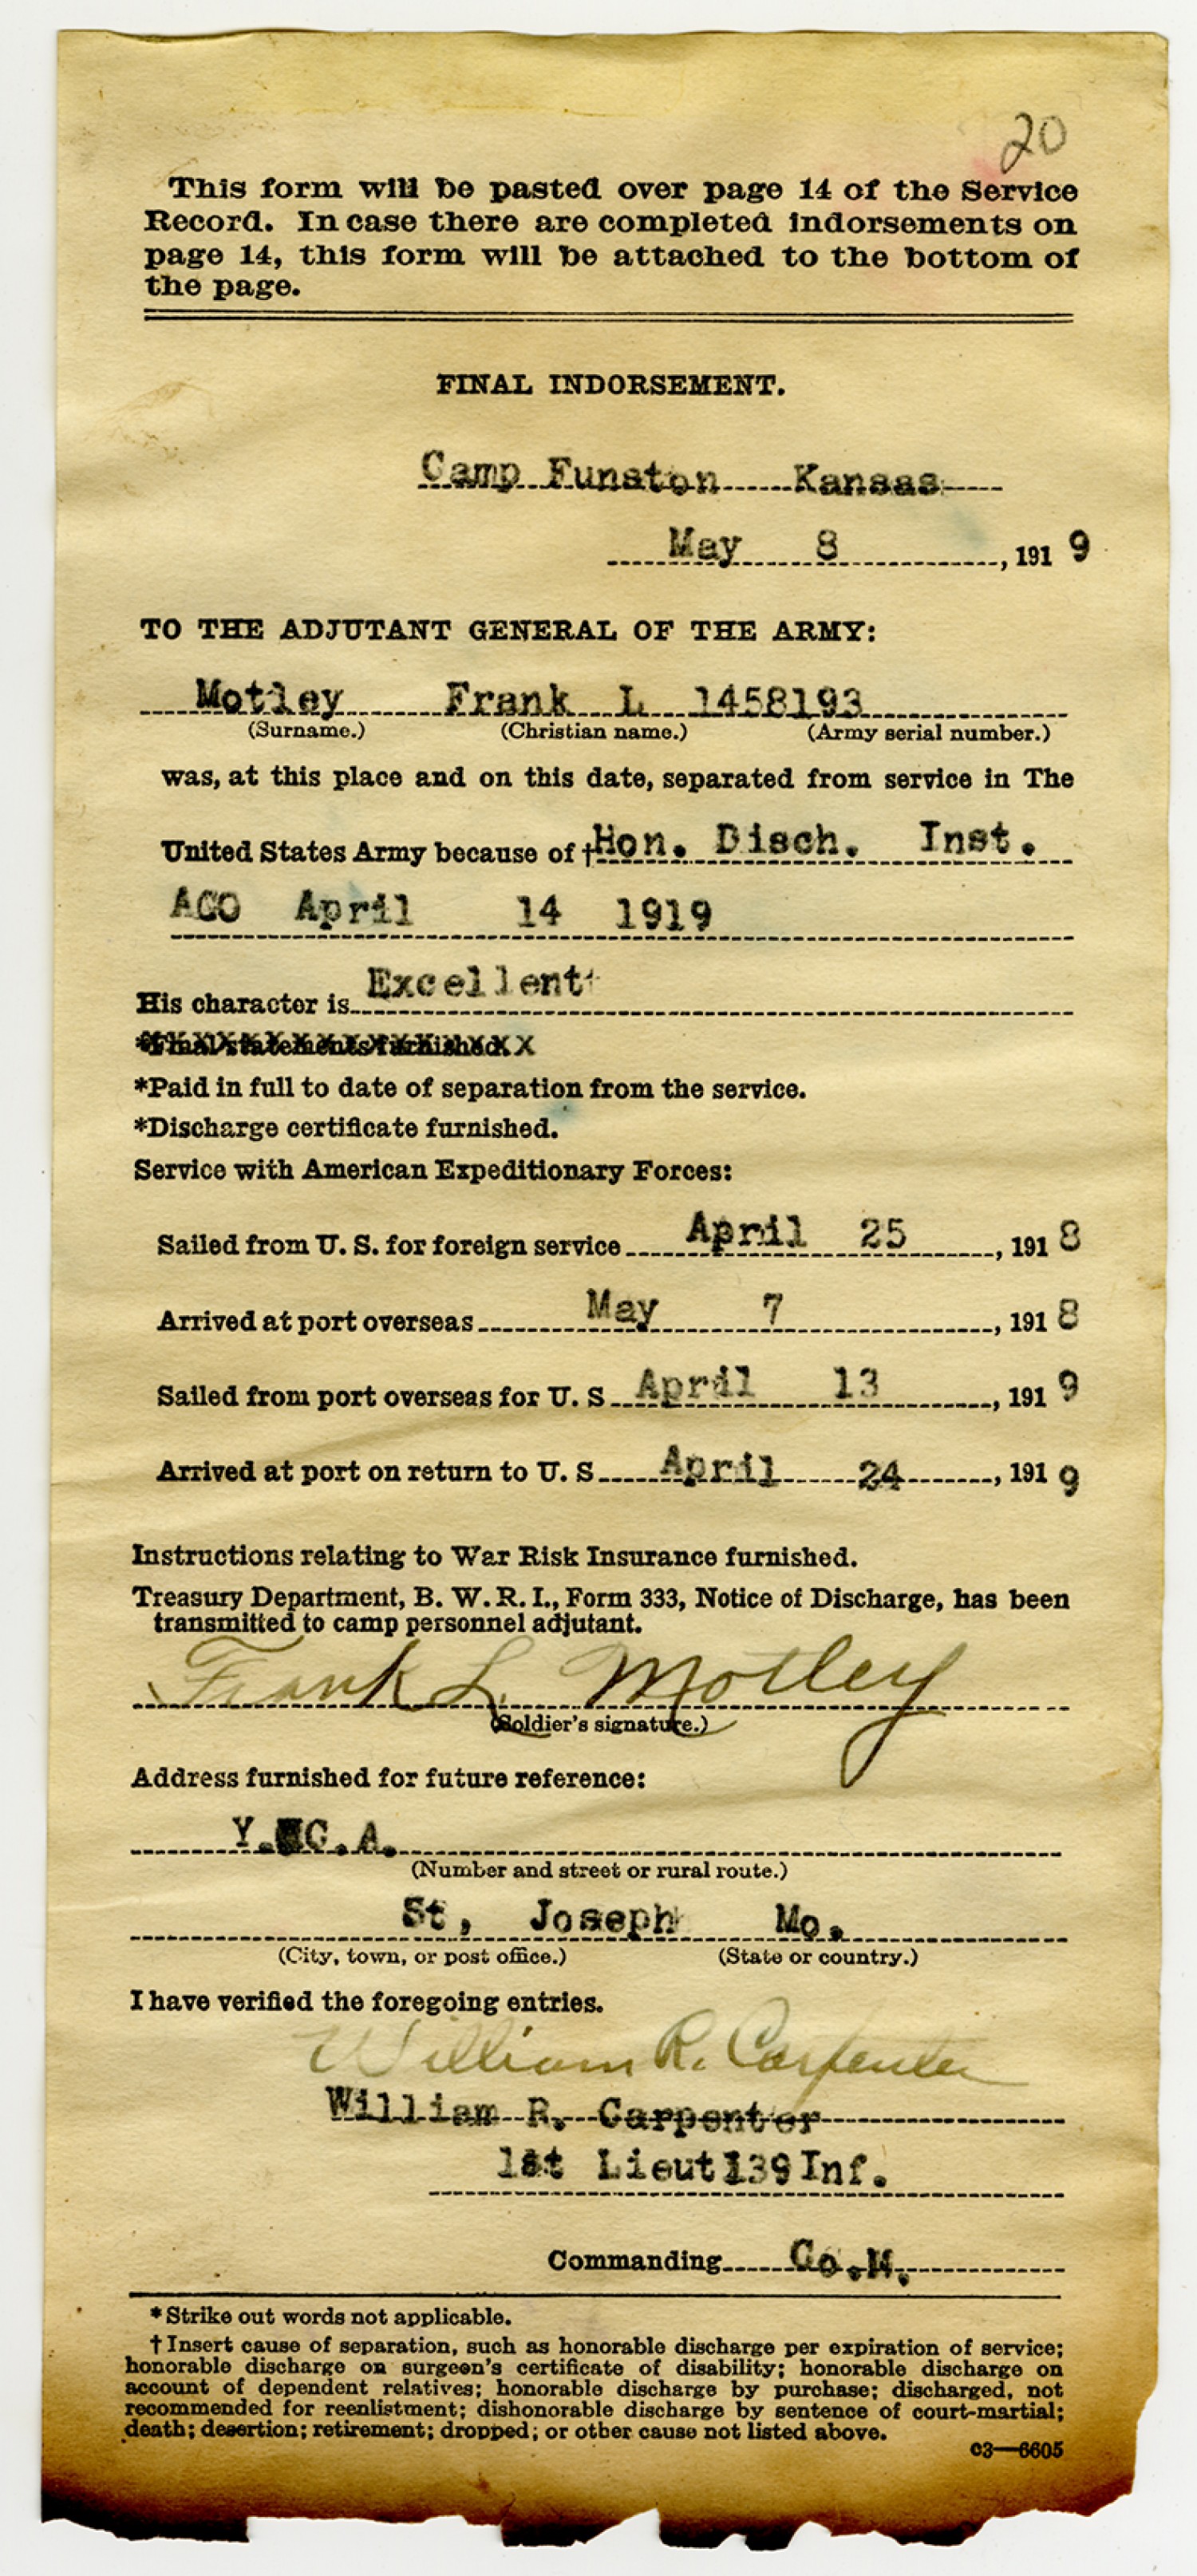 20
This form will be pasted over page 14 of the Service
Record. In case there are completed indorsements on
page 14, this form will be attached to the bottom of
the page.
FINAL INDORSEMENT.
Camp Funston Kansas
May 8, 1919
TO THE ADJUTANT GENERAL OF THE ARMY:
Motley Frank L 1458193
(Surname.) (Christian name.) (Army serial number.)
was, at this place and on this date, separated from service in The
United States Army because of †Hon. Disch. Inst.
AGO April 14 1919
His character is Excellent
*Final statements furnished.
*Paid in full to date of separation from the service.
*Discharge certificate furnished.
Service with American Expeditionary Forces:
Sailed from U. S. for foreign service April 25, 1918
Arrived at port overseas May 7, 1918
Sailed from port overseas for U. S April 13, 1919
Arrived at port on return to U. S April 24, 1919
Instructions relating to War Risk Insurance furnished.
Treasury Department, B. W. R. I., Form 333, Notice of Discharge, has been
transmitted to camp personnel adjutant.
Frank L. Motley
(Soldier's signature.)
Address furnished for future reference:
Y. C.A.
(Number and street or rural route.)
St, Joseph Mo.
(City, town, or post office.) (State or country.)
I have verified the foregoing entries.
William R. Carpenter
William R. Carpenter
1st Lieut 139 Inf.
Commanding Co.M.
*Strike out words not applicable.
†Insert cause of separation, such as honorable discharge per expiration of service;
honorable discharge on surgeon's certificate of disability; honorable discharge on
account of dependent relatives; honorable discharge by purchase; discharged, not
recommended for reenlistment; dishonorable discharge by sentence of court-martial;
death; desertion; retirement; dropped; or other cause not listed above.
c3—6605